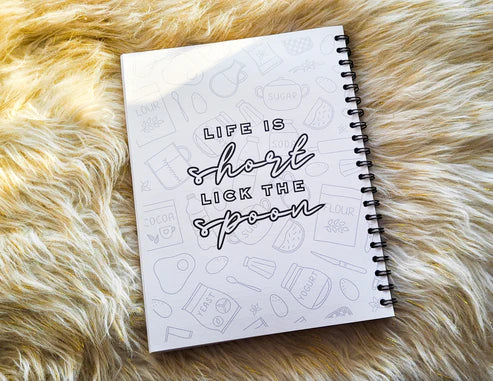 LIFE IS
short
LICK THE
spoon
SUGAR
LOUR
SODA
COCOA
FLOUR
YEAST
YOGURT